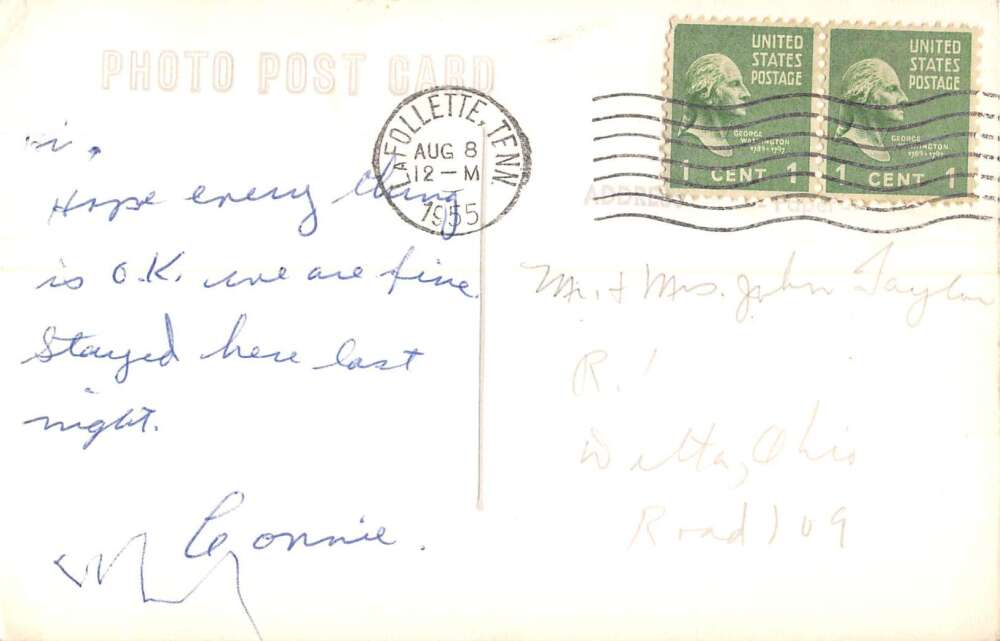 PHOTO POST CARD
LAFOLLETTE, TENN.
AUG 8
12 - M
1955
UNITED
STATES
POSTAGE
GEORGE
WASHINGTON
1789-1797
1 CENT 1
UNITED
STATES
POSTAGE
GEORGE
WASHINGTON
1789-1797
1 CENT 1
ADDRESS
Hi.
Hope every thing
is O.K. we are fine.
Stayed here last
night.
Connie.
Mr. & Mrs. John Taylor
R. 1
Delta, Ohio
Road 109